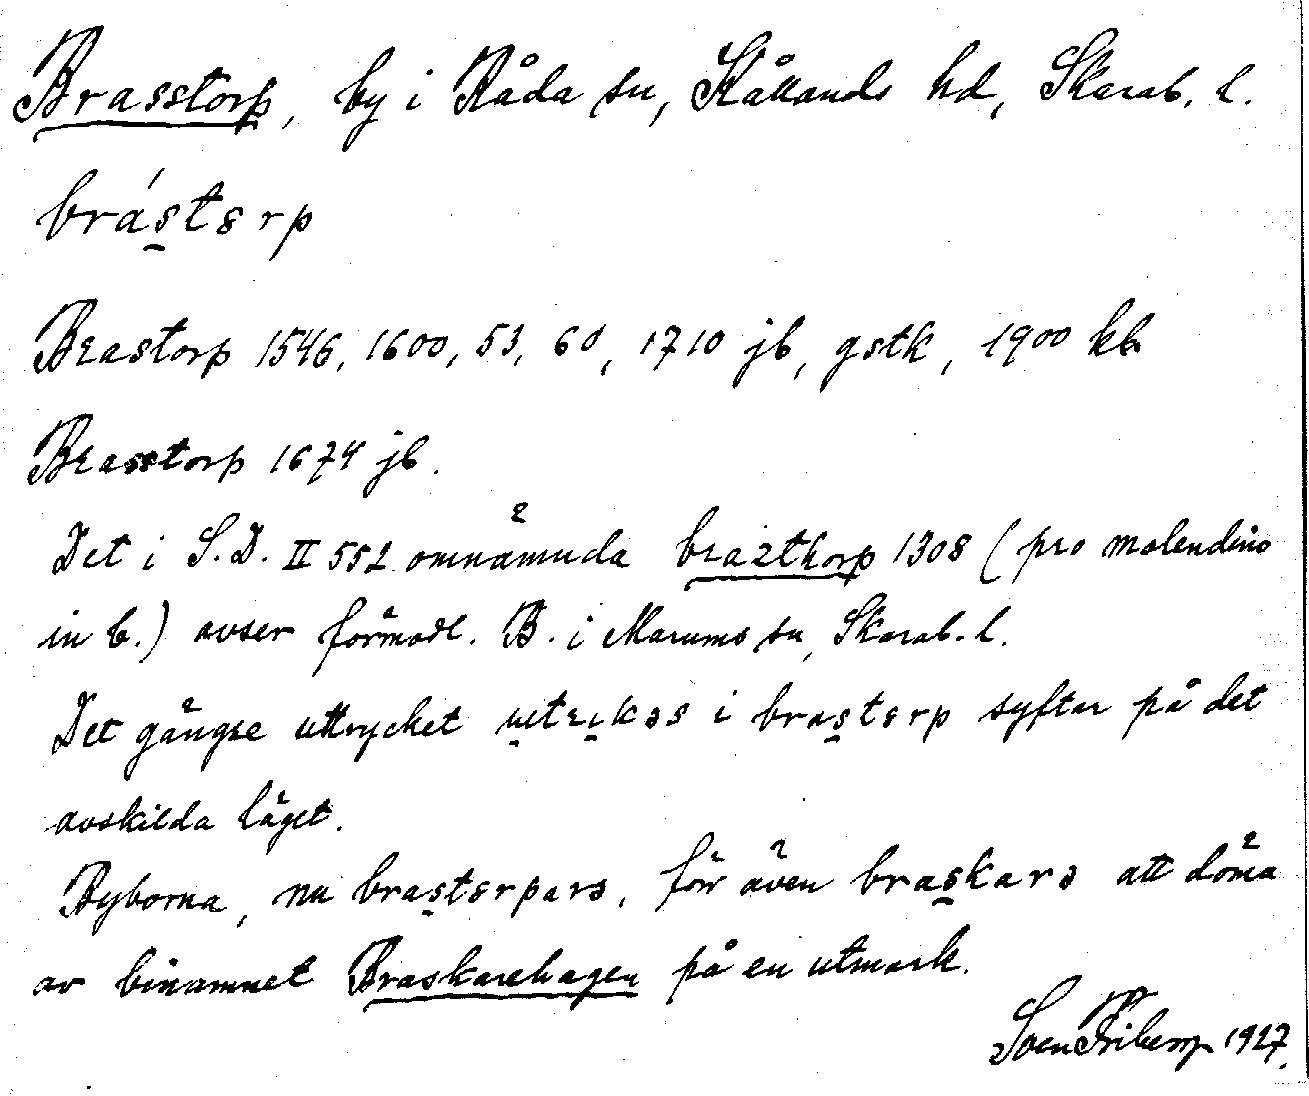 Brasstorp, by i Råda sn, Kållands hd, Skarab. l.
brástɛrp
Brastorp 1546, 1600, 53, 60, 1710 jb, gstk, 1900 kb
Brasstorp 1674 jb.
Det i S.D. II 552 omnämnda brazthorp 1308 (pro molendino
in b.) avser förmodl. B. i Marums sn, Skarab. l.
Det gängse uttrycket i brastɛrp syftar på det
avskilda läget.
Byborna, nu brastɛrparə, för även braskarə att döma
av binamnet Braskarehagen på en utmark.
Sven Friberg 1927.